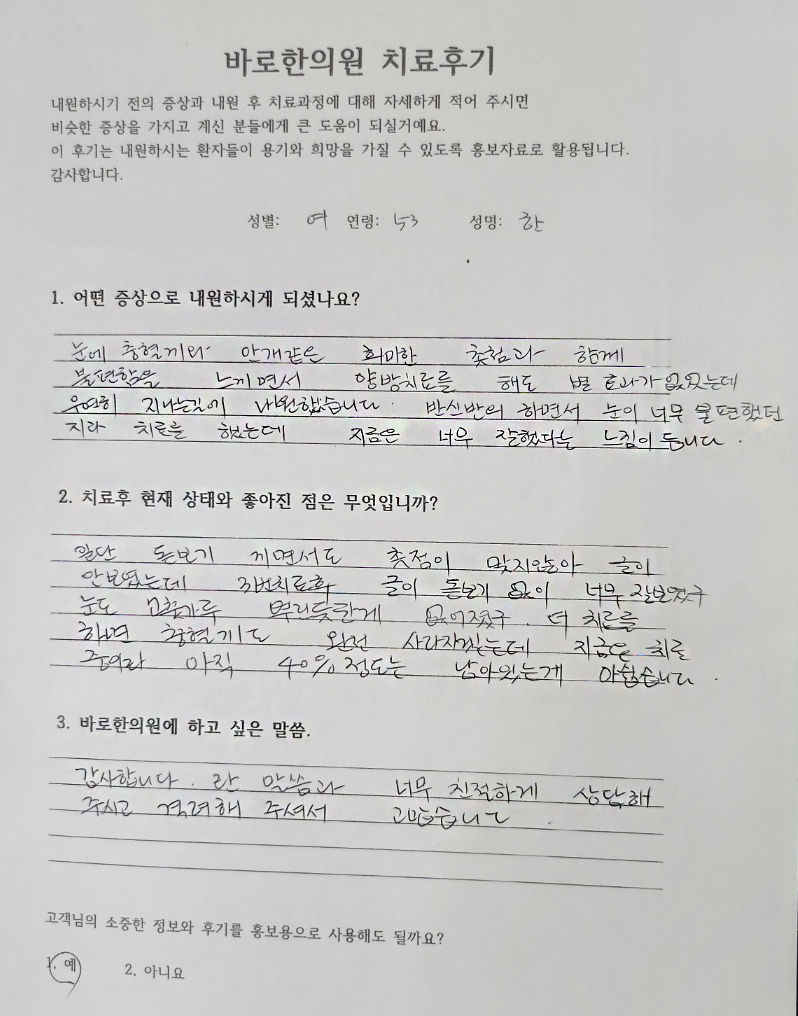 바로한의원 치료후기
내원하시기 전의 증상과 내원 후 치료과정에 대해 자세하게 적어 주시면
비슷한 증상을 가지고 계신 분들에게 큰 도움이 되실거예요.
이 후기는 내원하시는 환자들이 용기와 희망을 가질 수 있도록 홍보자료로 활용됩니다.
감사합니다.
성별: 여 연령: 53 성명: 한
1. 어떤 증상으로 내원하시게 되셨나요?
눈에 충혈끼와 안개같은 희미한 촛점과 함께
불편함을 느끼면서 양방치료를 해도 별 효과가 없었는데
우연히 지나는길에 내원했습니다. 반신반의 하면서 눈이 너무 불편했던
지라 치료를 했는데 지금은 너무 잘했다는 느낌이 듭니다.
2. 치료후 현재 상태와 좋아진 점은 무엇입니까?
일단 돋보기 끼면서도 촛점이 맞지않아 글이
안보였는데 3번치료후 글이 돋보기 없이 너무 잘보였구
눈도 뿌리듯한게 없어졌구. 더 치료를
하면 충혈끼도 완전 사라지겠는데 지금은 치료
중이라 아직 40%정도는 남아있는게 아쉽습니다.
3. 바로한의원에 하고 싶은 말씀.
감사합니다. 란 말씀과 너무 친절하게 상담해
주시고 격려해 주셔서 고맙습니다.
고객님의 소중한 정보와 후기를 홍보용으로 사용해도 될까요?
1. 예 2. 아니요